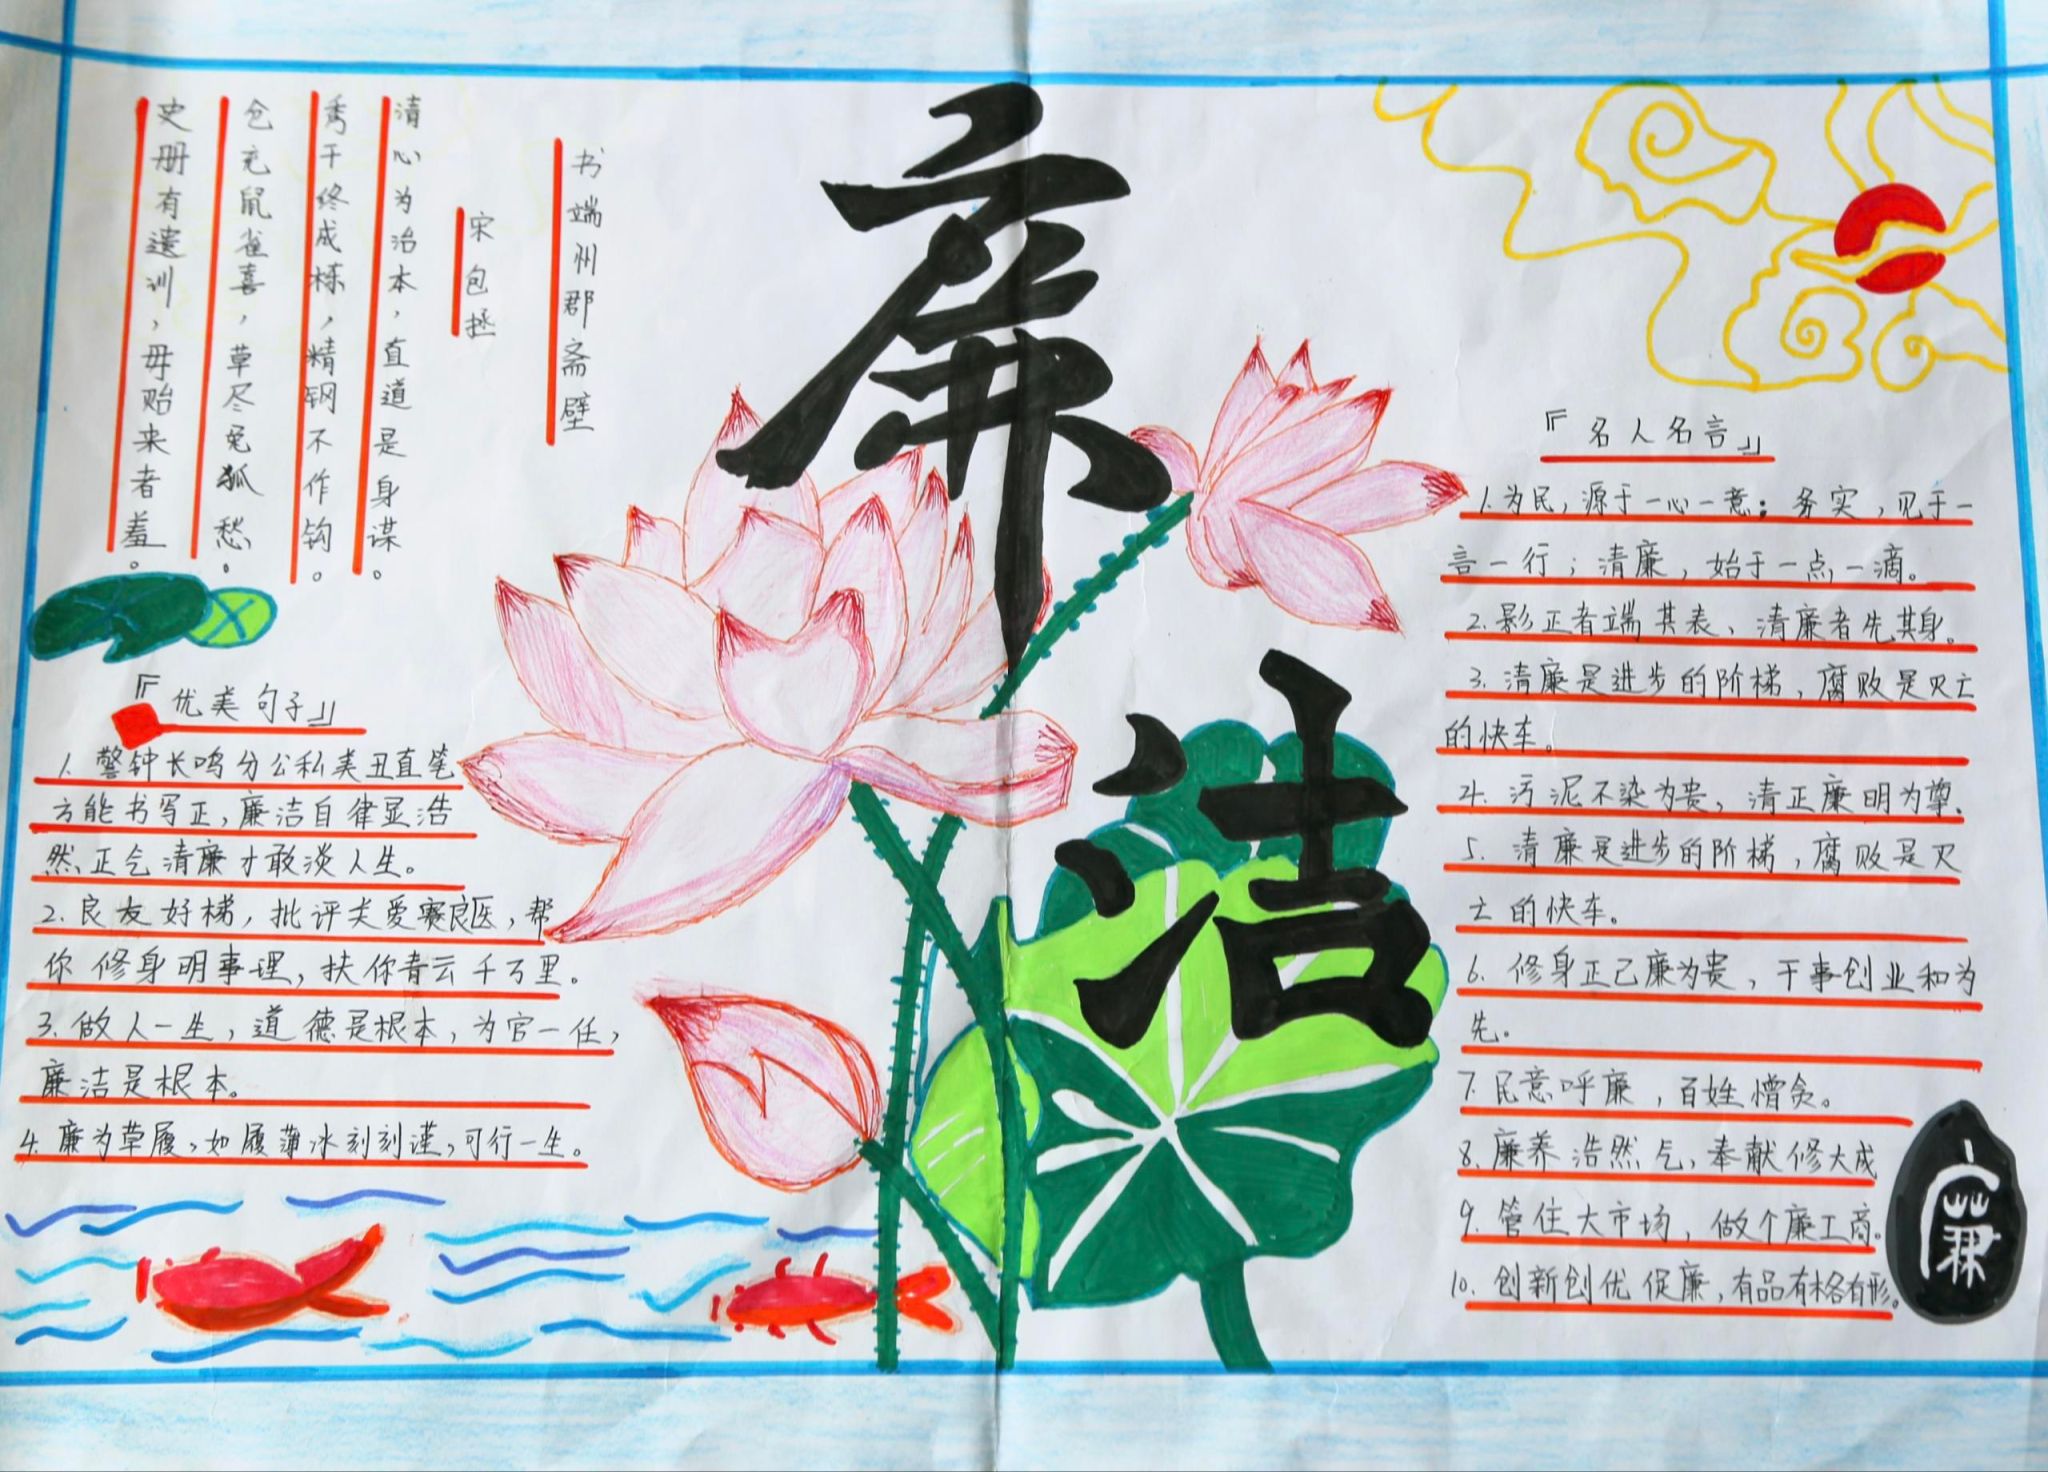 廉洁
书端州郡斋壁
宋包拯
清心为治本，直道是身谋。
秀干终成栋，精钢不作钩。
仓充鼠雀喜，草尽兔狐愁。
史册有遗训，毋贻来者羞。
『优美句子』
1. 警钟长鸣分公私美丑直笔
方能书写正，廉洁自律显浩
然正气清廉才敢淡人生。
2. 良友好梯，批评关爱赛良医，帮
你修身明事理，扶你青云千万里。
3. 做人一生，道德是根本，为官一任，
廉洁是根本。
4. 廉为草履，如履薄冰刻刻谨，可行一生。
『名人名言』
1. 为民，源于一心一意；务实，见于一
言一行；清廉，始于一点一滴。
2. 影正者端其表、清廉者先其身。
3. 清廉是进步的阶梯，腐败是灭亡
的快车。
4. 污泥不染为贵，清正廉明为尊。
5. 清廉是进步的阶梯，腐败是灭
亡的快车。
6. 修身正己廉为贵，干事创业和为
先。
7. 民意呼廉，百姓憎贪。
8. 廉养浩然气，奉献修大成
9. 管住大市场，做个廉工商。
10. 创新创优促廉，有品有格有形。
廉